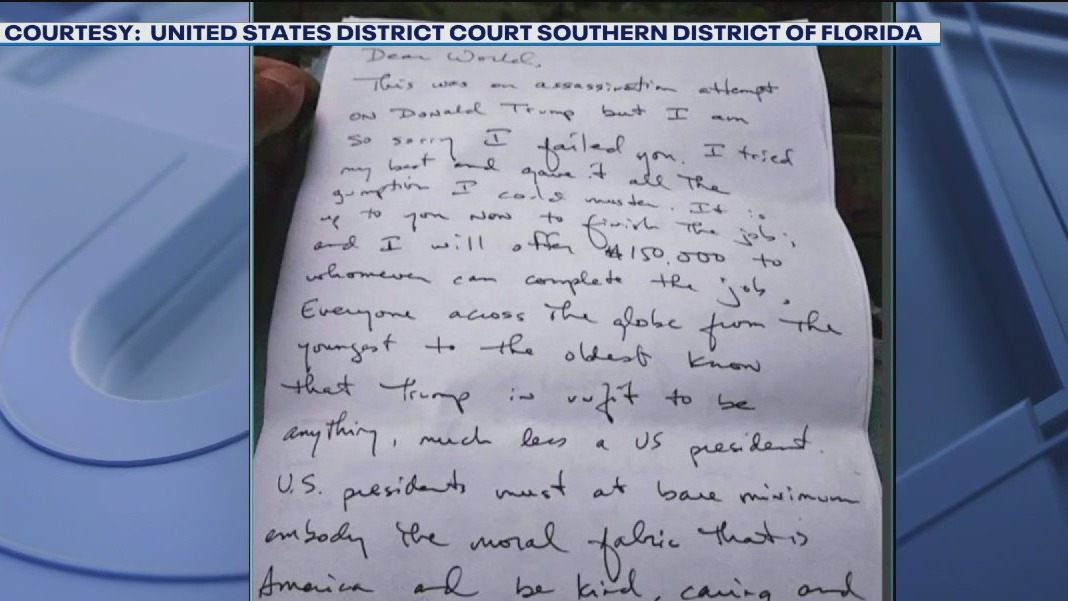 COURTESY: UNITED STATES DISTRICT COURT SOUTHERN DISTRICT OF FLORIDA
Dear World,
This was an assassination attempt
on Donald Trump but I am
so sorry I failed you. I tried
my best and gave it all the
gumption I could muster. It is
up to you now to finish the job;
and I will offer $150,000 to
whomever can complete the job.
Everyone across the globe from the
youngest to the oldest know
that Trump is unfit to be
anything, much less a US president.
U.S. presidents must at bare minimum
embody the moral fabric that is
America and be kind, caring and